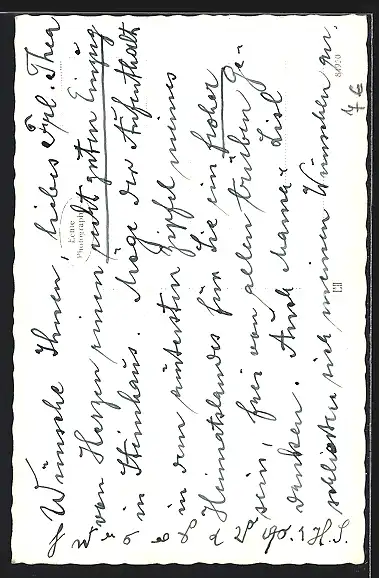 Wünsche Ihnen, liebes Frl. Thea
von Herzen einen recht guten Einzug
in Steinhaus. Möge der Aufenthalt
in dem äußersten Zipfel meines
Heimatlandes für Sie ein froher
sein, frei von allen trüben Ge-
danken. Auch Mama & Lisl
schließen sich meinen Wünschen an.
H. S.
Echte
Photographie